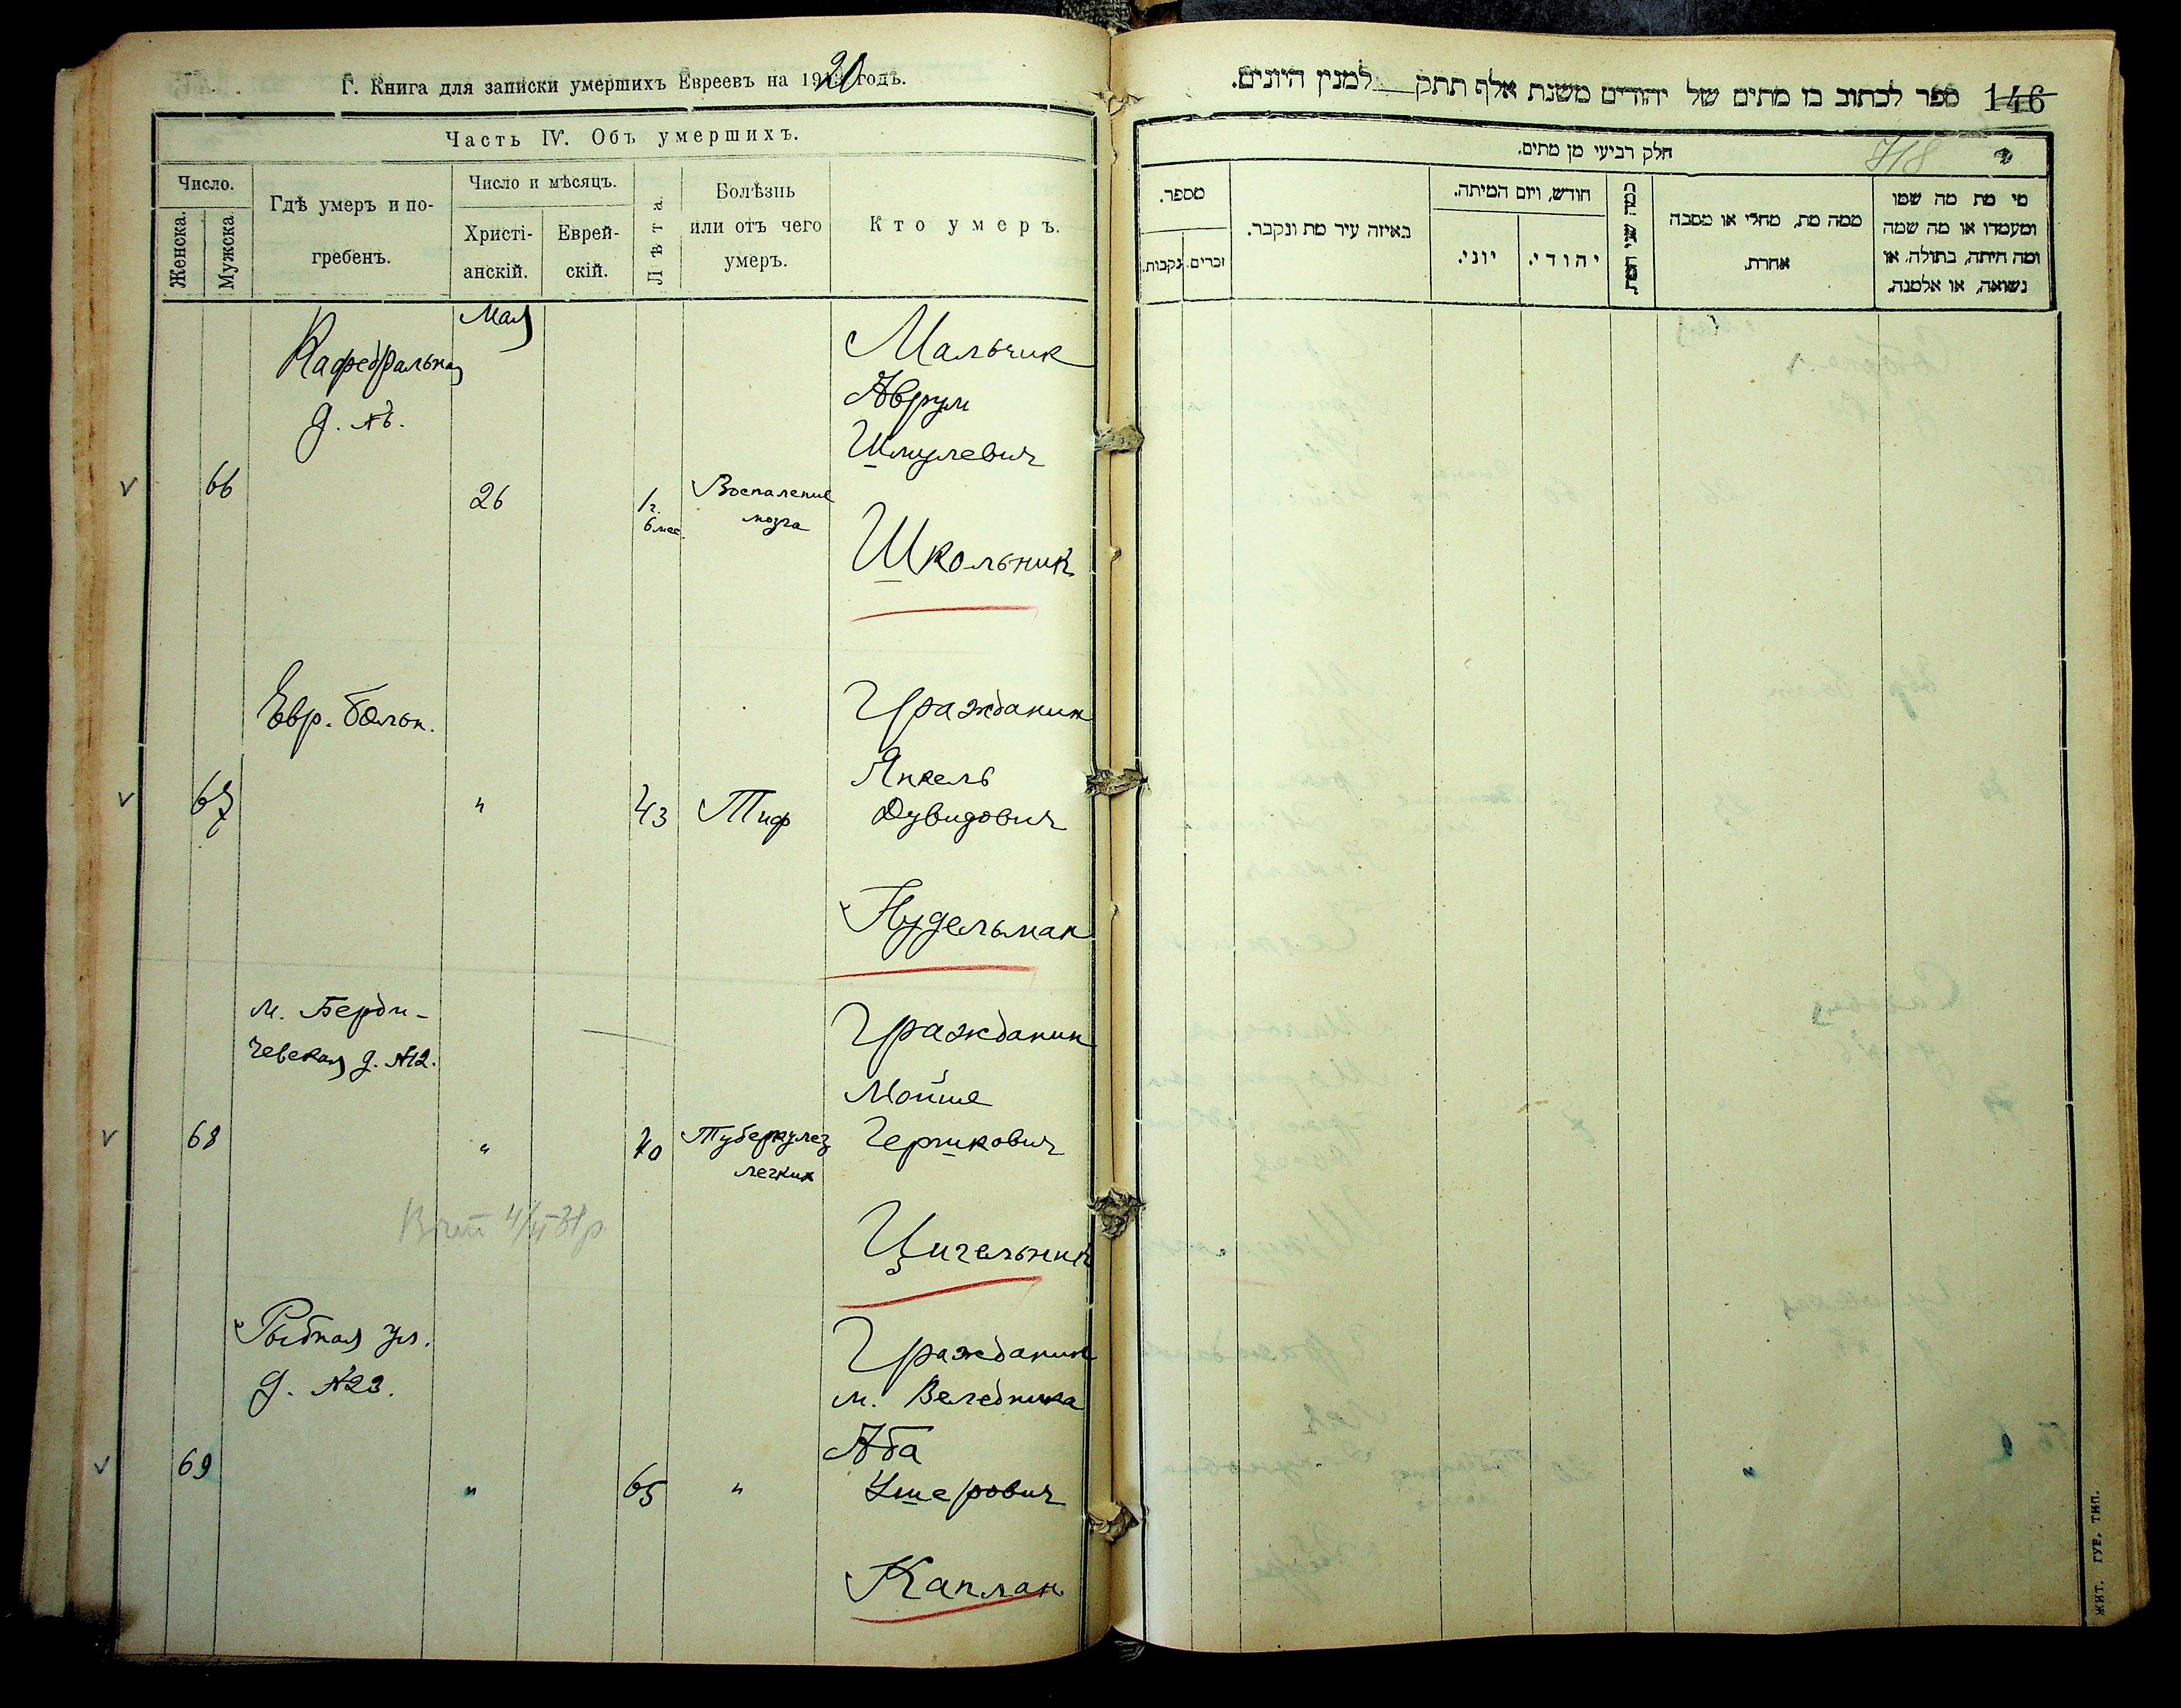 Г. Книга для записки умершихъ Евреевъ на 1920 годъ.
Часть IV. Объ умершихъ.
Число.
Женска.
Мужска.
Гдѣ умеръ и по-
гребенъ.
Число и мѣсяцъ.
Христі-
анскій.
Еврей-
скій.
Лѣта.
Болѣзнь
или отъ чего
умеръ.
Кто умеръ.
Мая
Кафедральная
д. №
66
26
1 г.
6 мес.
Воспаление
мозга
Мальчик
Аврум
Шмулевич
Школьник
Евр. больн.
67
"
43
Тиф
Гражданин
Янкель
Дувидович
Нудельман
м. Берди-
чевская д. №12.
68
"
40
Туберкулез
легких
Гражданин
Мойше
Гершкович
Цигельник
Рыбная ул.
д. №23.
69
"
65
"
Гражданин
м. Веледника
Аба
Ушерович
Каплан
ספר לכתוב בו מתים של יהודים משנת אלף תתק למנין היונים.
146
718
חלק רביעי מן מתים.
מספר.
זכרים.
נקבות.
באיזה עיר מת ונקבר.
חודש, ויום המיתה.
יוני.
יהודי.
כמה שני המת
ממה מת, מחלי או מסבה
אחרת.
מי מת מה שמו
ומעמדו או מה שמה
ומה היתה, בתולה, או
נשואה, או אלמנה.
ЖИТ. ГУБ. ТИП.